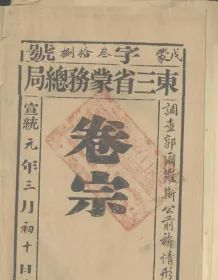 戊蒙字叁拾捌號
東三省蒙務總局
調查郭爾羅斯公前旗情形
卷宗
宣統元年三月初十日